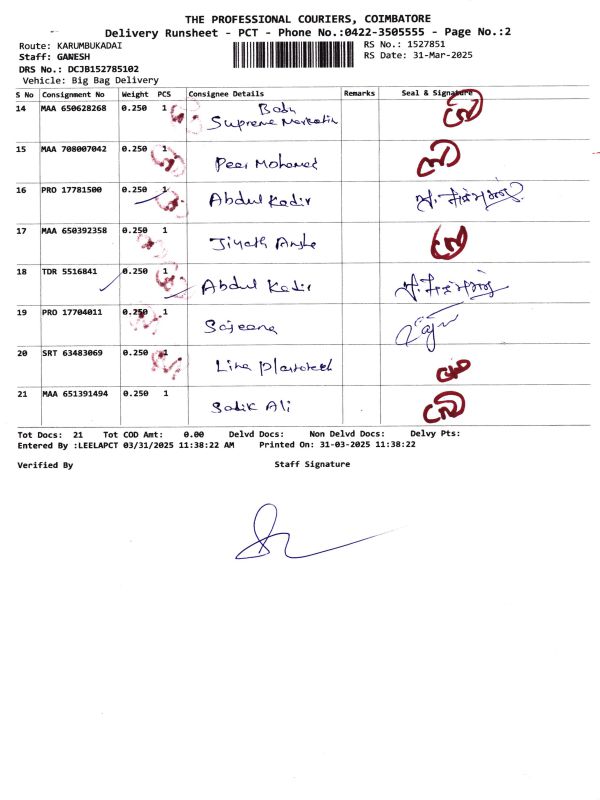 THE PROFESSIONAL COURIERS, COIMBATORE
Delivery Runsheet - PCT - Phone No.:0422-3505555 - Page No.:2
Route: KARUMBUKADAI RS No.: 1527851
Staff: GANESH RS Date: 31-Mar-2025
DRS No.: DCJB152785102
Vehicle: Big Bag Delivery
S No Consignment No Weight PCS Consignee Details Remarks Seal & Signature
14 MAA 650628268 0.250 1 Babu
Supreme Marketin
15 MAA 708007042 0.250 1 Peer Mohamed
16 PRO 17781500 0.250 1 Abdul Kadir
17 MAA 650392358 0.250 1
18 TDR 5516841 0.250 1 Abdul Kadir
19 PRO 17704011 0.250 1 Sajeena
20 SRT 63483069 0.250 1 Line
21 MAA 651391494 0.250 1 Sadik Ali
Tot Docs: 21 Tot COD Amt: 0.00 Delvd Docs: Non Delvd Docs: Delvy Pts:
Entered By :LEELAPCT 03/31/2025 11:38:22 AM Printed On: 31-03-2025 11:38:22
Verified By Staff Signature